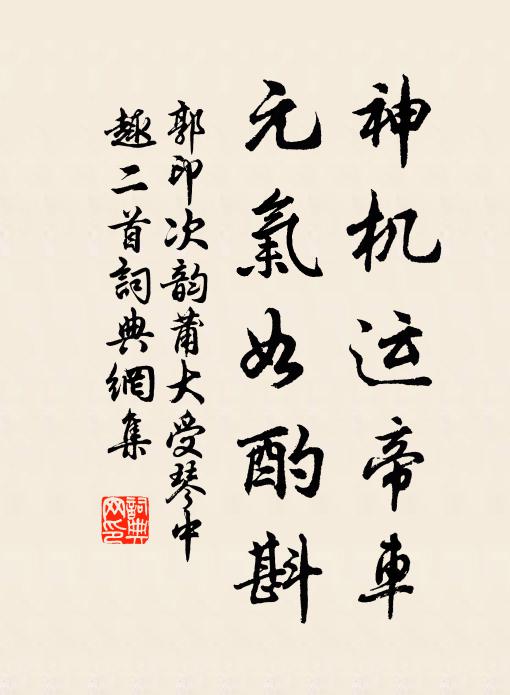 神机运帝車
元氣如酌斟
郭印次韵蒲大受琴中
趣二首詞典網集
詞典網印